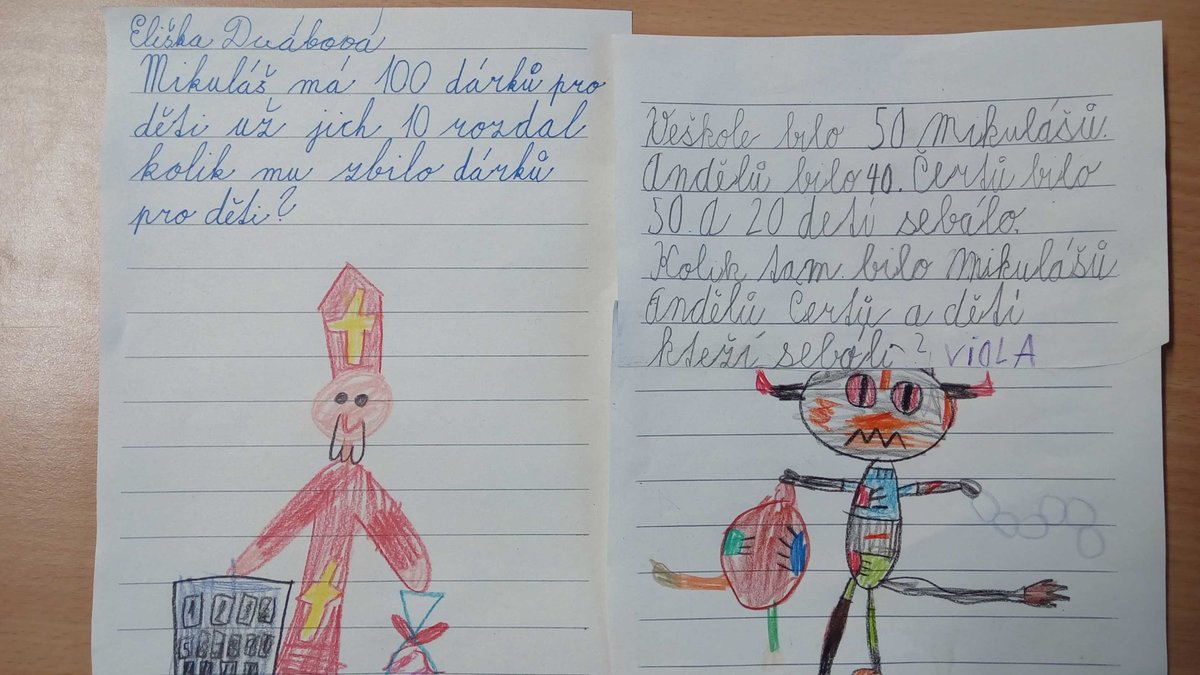 Eliška Dvábová
Mikuláš má 100 dárků pro
děti už jich 10 rozdal
kolik mu zbilo dárků
pro děti?
Veškole bilo 50 Mikulášů.
Andělů bilo 40. Čertů bilo
50. A 20 detí sebálo.
Kolik tam bilo Mikulášů
Andělů Čertů a dětí
kteží sebáli? VIOLA